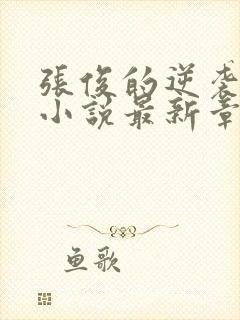 張俊的逆袭
小説最新章
鱼歌